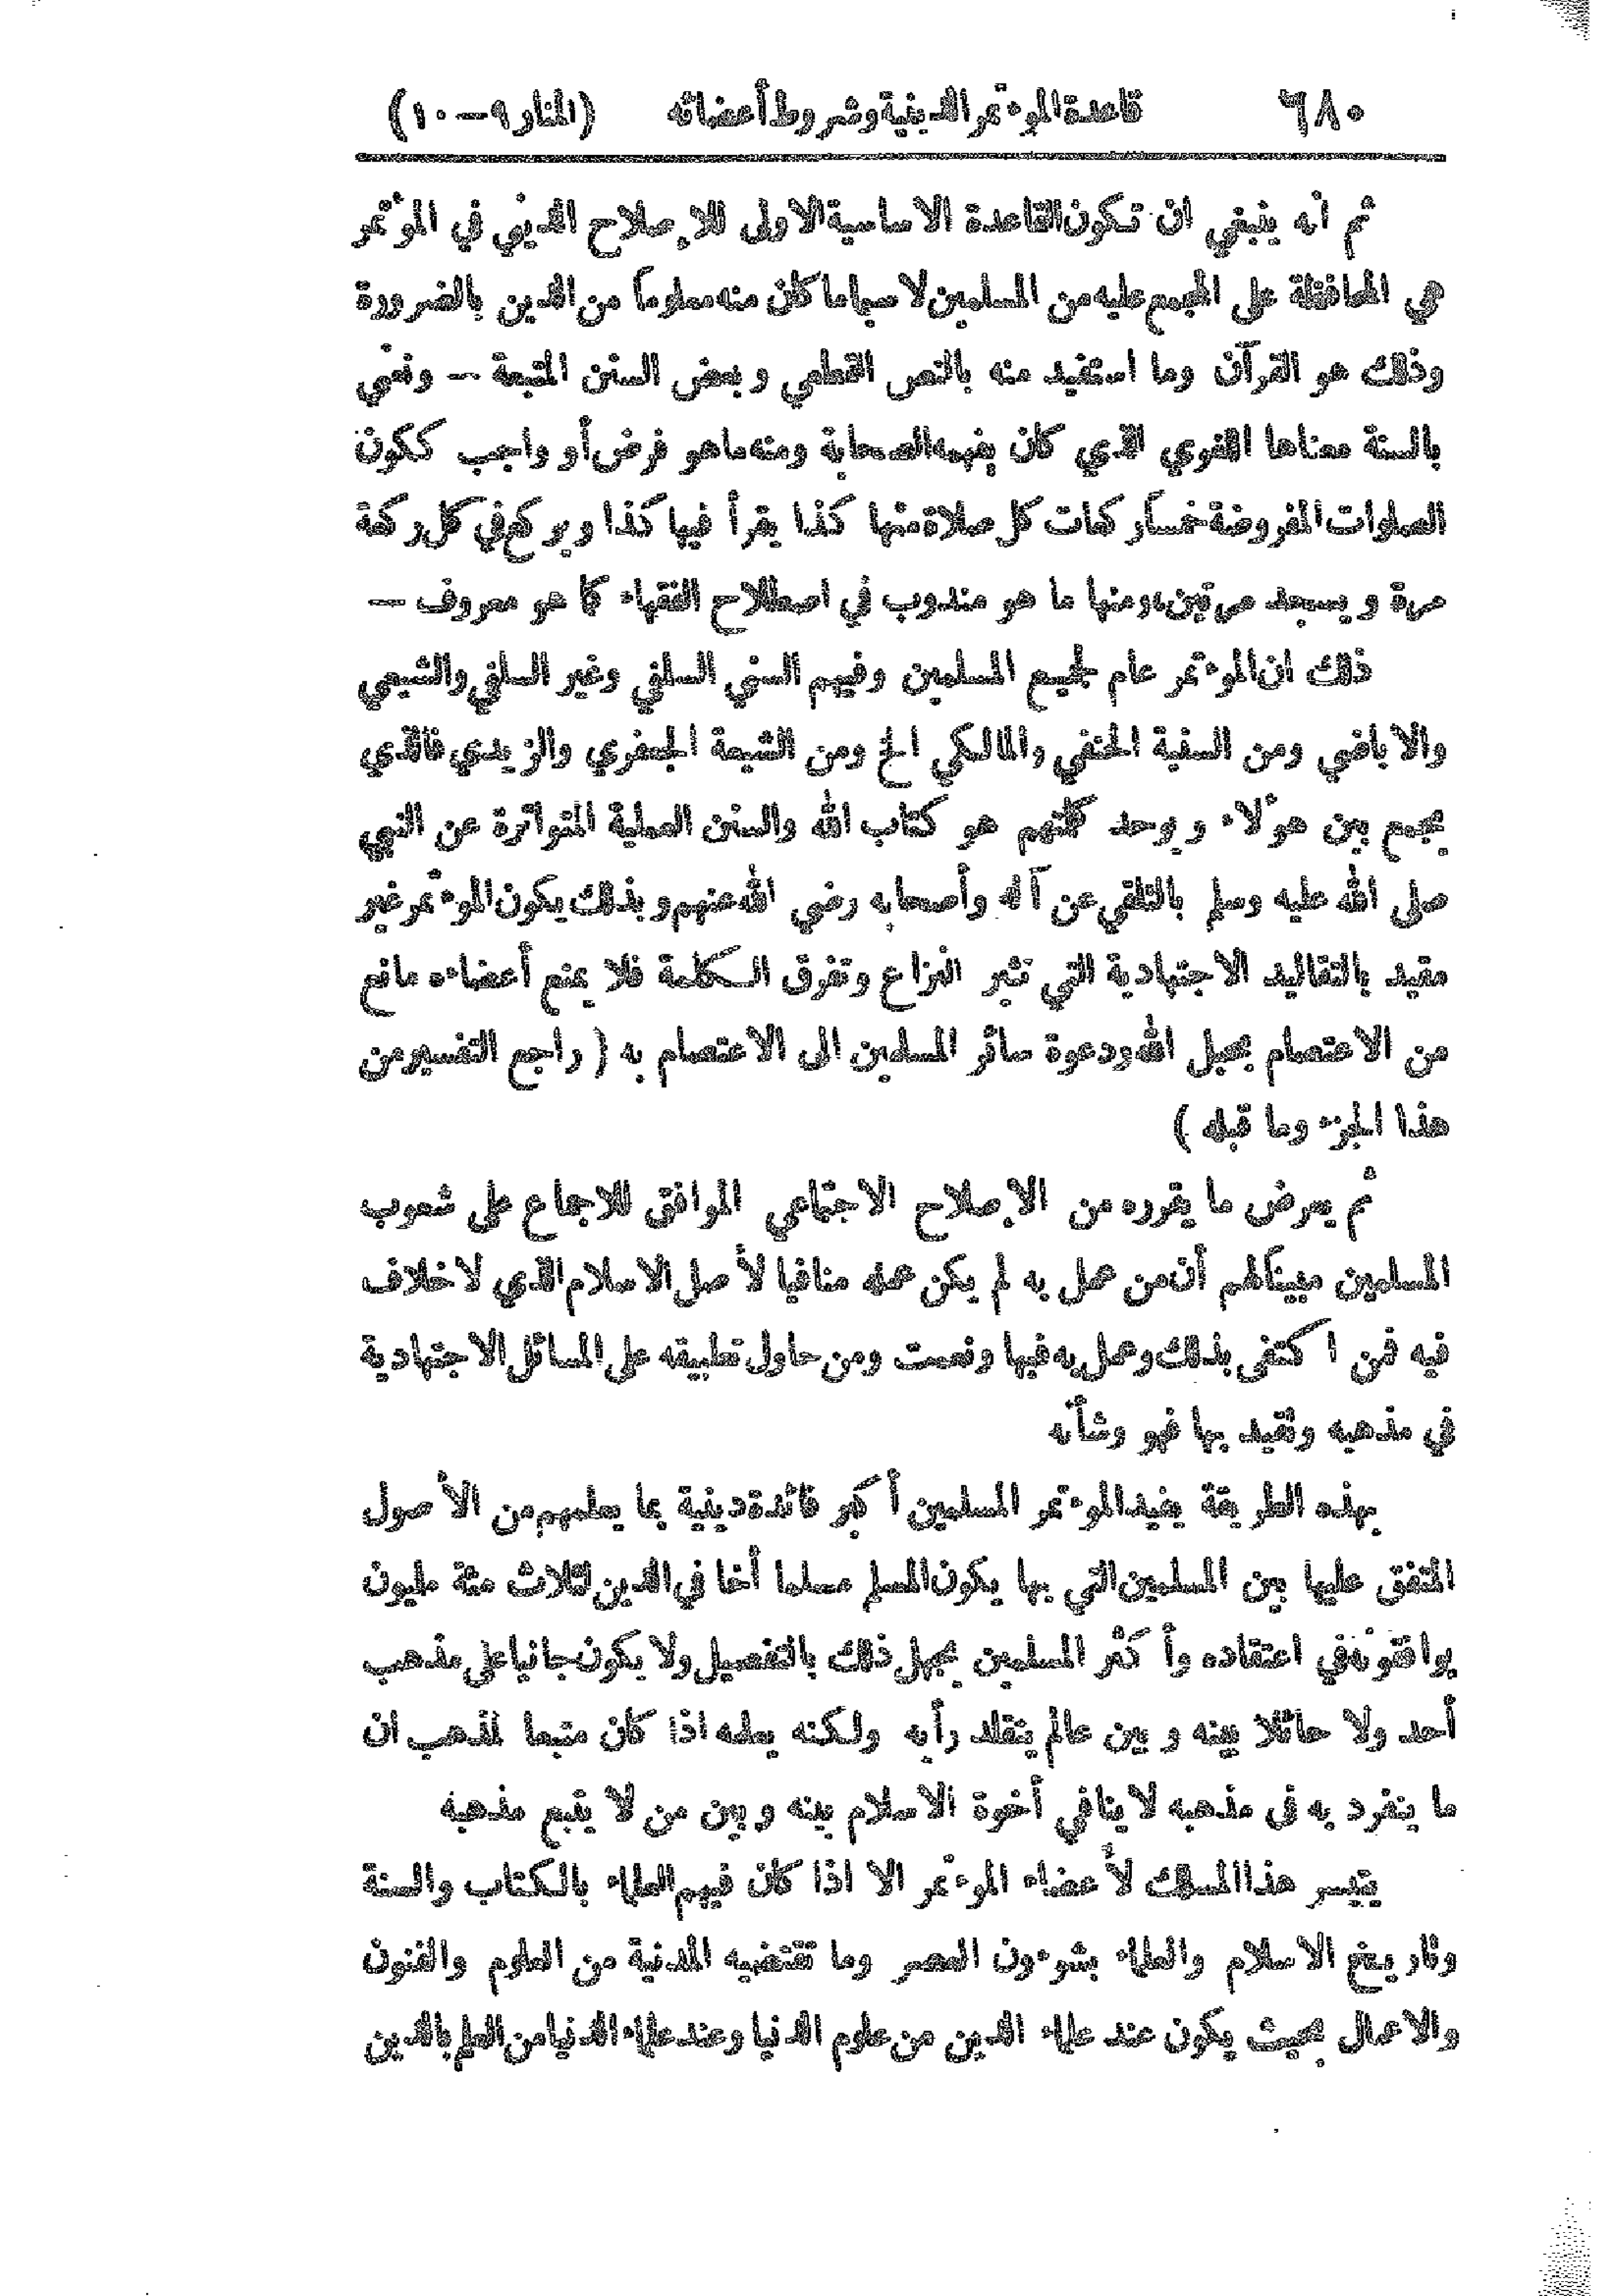 ٦٨٠ قاعدة المؤتمر الدينية وشروط أعضائه (المنار ٩ — ١٠)
ثم انه ينبغي ان تكون القاعدة الاساسية الاولى للإصلاح الديني في المؤتمر
هي المحافظة على المجمع عليه من المسلمين لا سيما ما كان منه معلوماً من الدين بالضرورة
وذلك هو القرآن وما استفيد منه بالنص القطعي وبعض السنن المتبعة — ونعني
بالسنة معناها اللغوي الذي كان يفهمه الصحابة ومنه ما هو فرض أو واجب ككون
الصلوات المفروضة خمساً ركعات كل صلاة منها كذا يقرأ فيها كذا ويركع في كل ركعة
مرة ويسجد مرتين، ومنها ما هو مندوب في اصطلاح الفقهاء كما هو معروف —
ذلك ان المؤتمر عام لجميع المسلمين وفيهم السني السلفي وغير السلفي والشيعي
والاباضي ومن السنية الحنفي والمالكي الخ ومن الشيعة الجعفري والزيدي فالذي
يجمع بين هؤلاء ويوحد كلمتهم هو كتاب الله والسنن العملية المتواترة عن النبي
صلى الله عليه وسلم بالتلقي عن آله وأصحابه رضي الله عنهم وبذلك يكون المؤتمر غير
مقيد بالتقاليد الاجتهادية التي تثير النزاع وتفرق الكلمة فلا يمنع أعضاءه مانع
من الاعتصام بحبل الله ودعوة سائر المسلمين الى الاعتصام به ( راجع التفسير من
هذا الجزء وما قبله )
ثم يعرض ما يقرره من الإصلاح الاجتماعي الموافق للاجماع على شعوب
المسلمين مبيناً لهم أن من عمل به لم يكن عمله منافيا لأصل الاسلام الذي لا خلاف
فيه فمن اكتفى بذلك وعمل به فبها ونعمت ومن حاول تطبيقه على المسائل الاجتهادية
في مذهبه وتقيد بها فهو وشأنه
بهذه الطريقة يفيد المؤتمر المسلمين أكبر فائدة دينية بما يعلمهم من الأصول
المتفق عليها بين المسلمين التي بها يكون المسلم مسلما أخا في الدين لثلاث مئة مليون
يوافقونه في اعتقاده وأكثر المسلمين يجهل ذلك بالتفصيل ولا يكون جانيا على مذهب
أحد ولا حائلا بينه وبين عالم يتقلد رأيه ولكنه يعلمه اذا كان متبعا لمذهب ان
ما ينفرد به في مذهبه لا ينافي أخوة الاسلام بينه وبين من لا يتبع مذهبه
يتيسر هذا المسلك لأعضاء المؤتمر الا اذا كان فيهم العلماء بالكتاب والسنة
وتاريخ الاسلام والعلماء بشؤون العصر وما تقتضيه المدنية من العلوم والفنون
والاعمال بحيث يكون عند علماء الدين من علوم الدنيا وعند علماء الدنيا من العلم بالدين